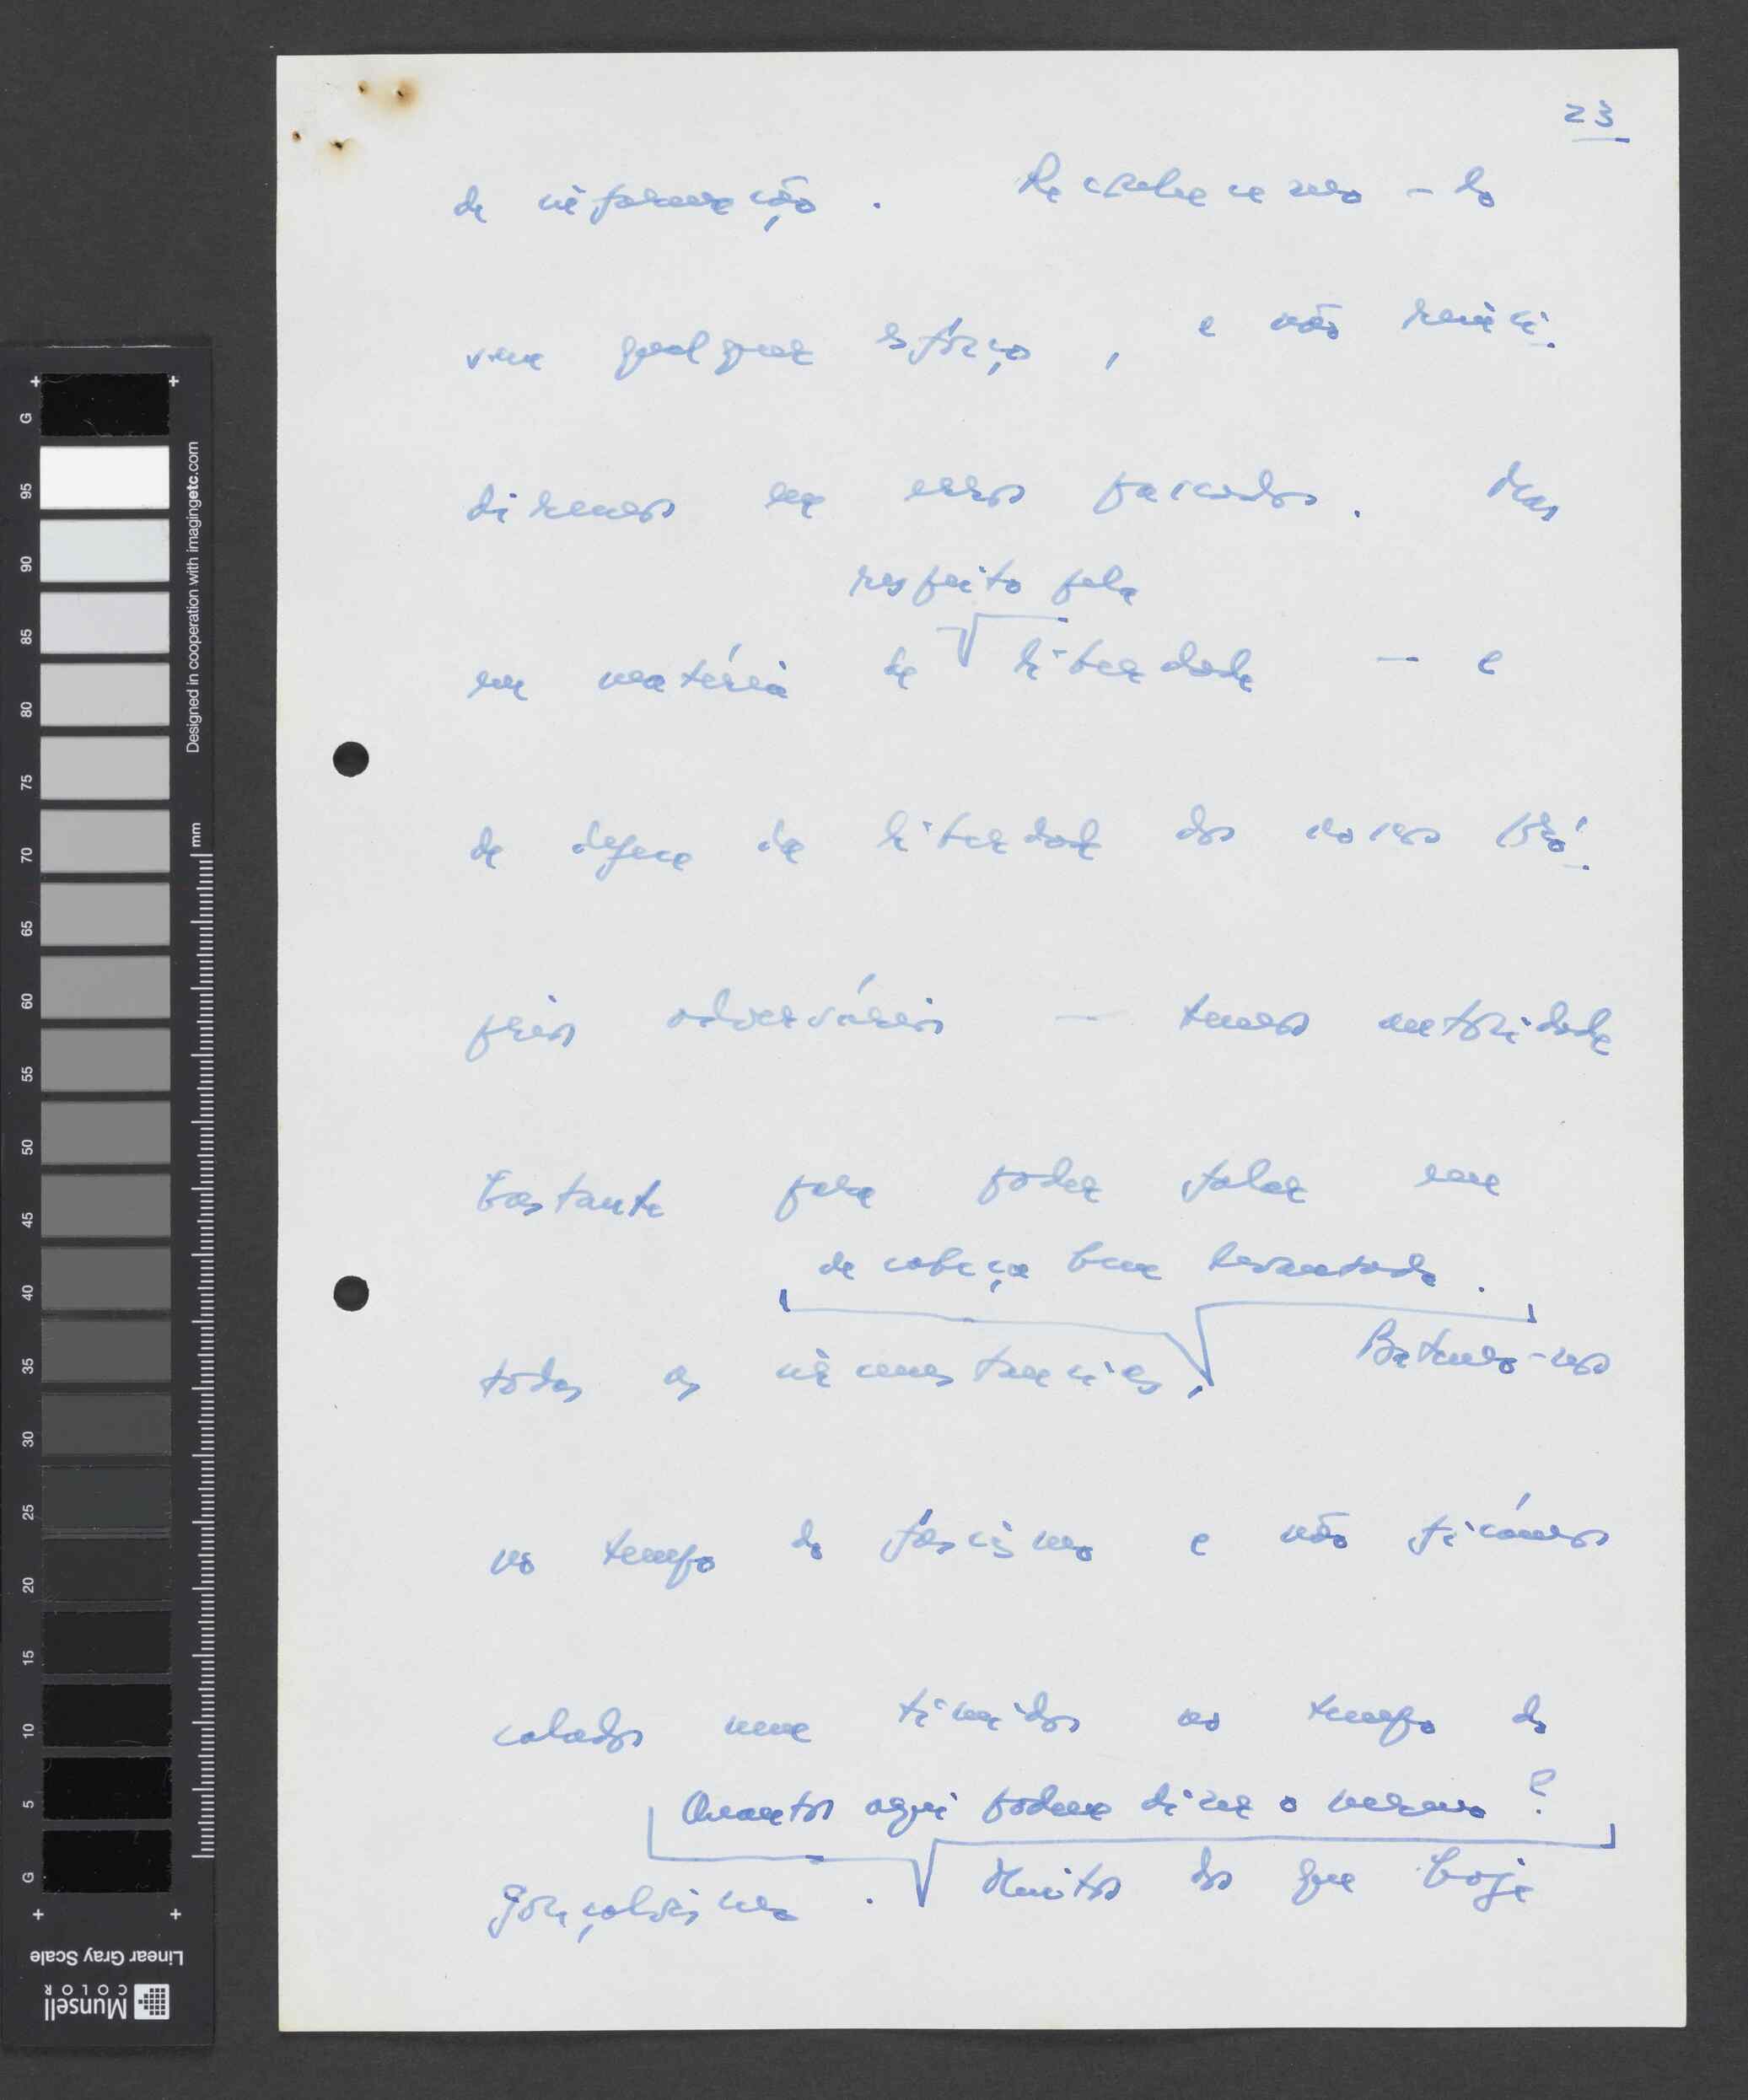 23
de informação. Reconhecemo-lo
sem qualquer esforço, e não reinci-
diremos em erros passados. Mas
respeito pela
em matéria de liberdade — e
de defesa da liberdade dos nossos pró-
prios adversários — temos autoridade
bastante para poder falar em
de cabeça bem levantada.
todas as circunstancias, Batemo-nos
no tempo do fascismo e não ficámos
calados nem timidos no tempo do
Quantos aqui podem dizer o mesmo?
gonçalvismo. Muitos dos que hoje
G 95 90 85 80 75 70 65 60 55 50 45 40 35 30 25 20 15 10 5 G
Designed in cooperation with imagingetc.com
mm
Linear Gray Scale
Munsell
COLOR